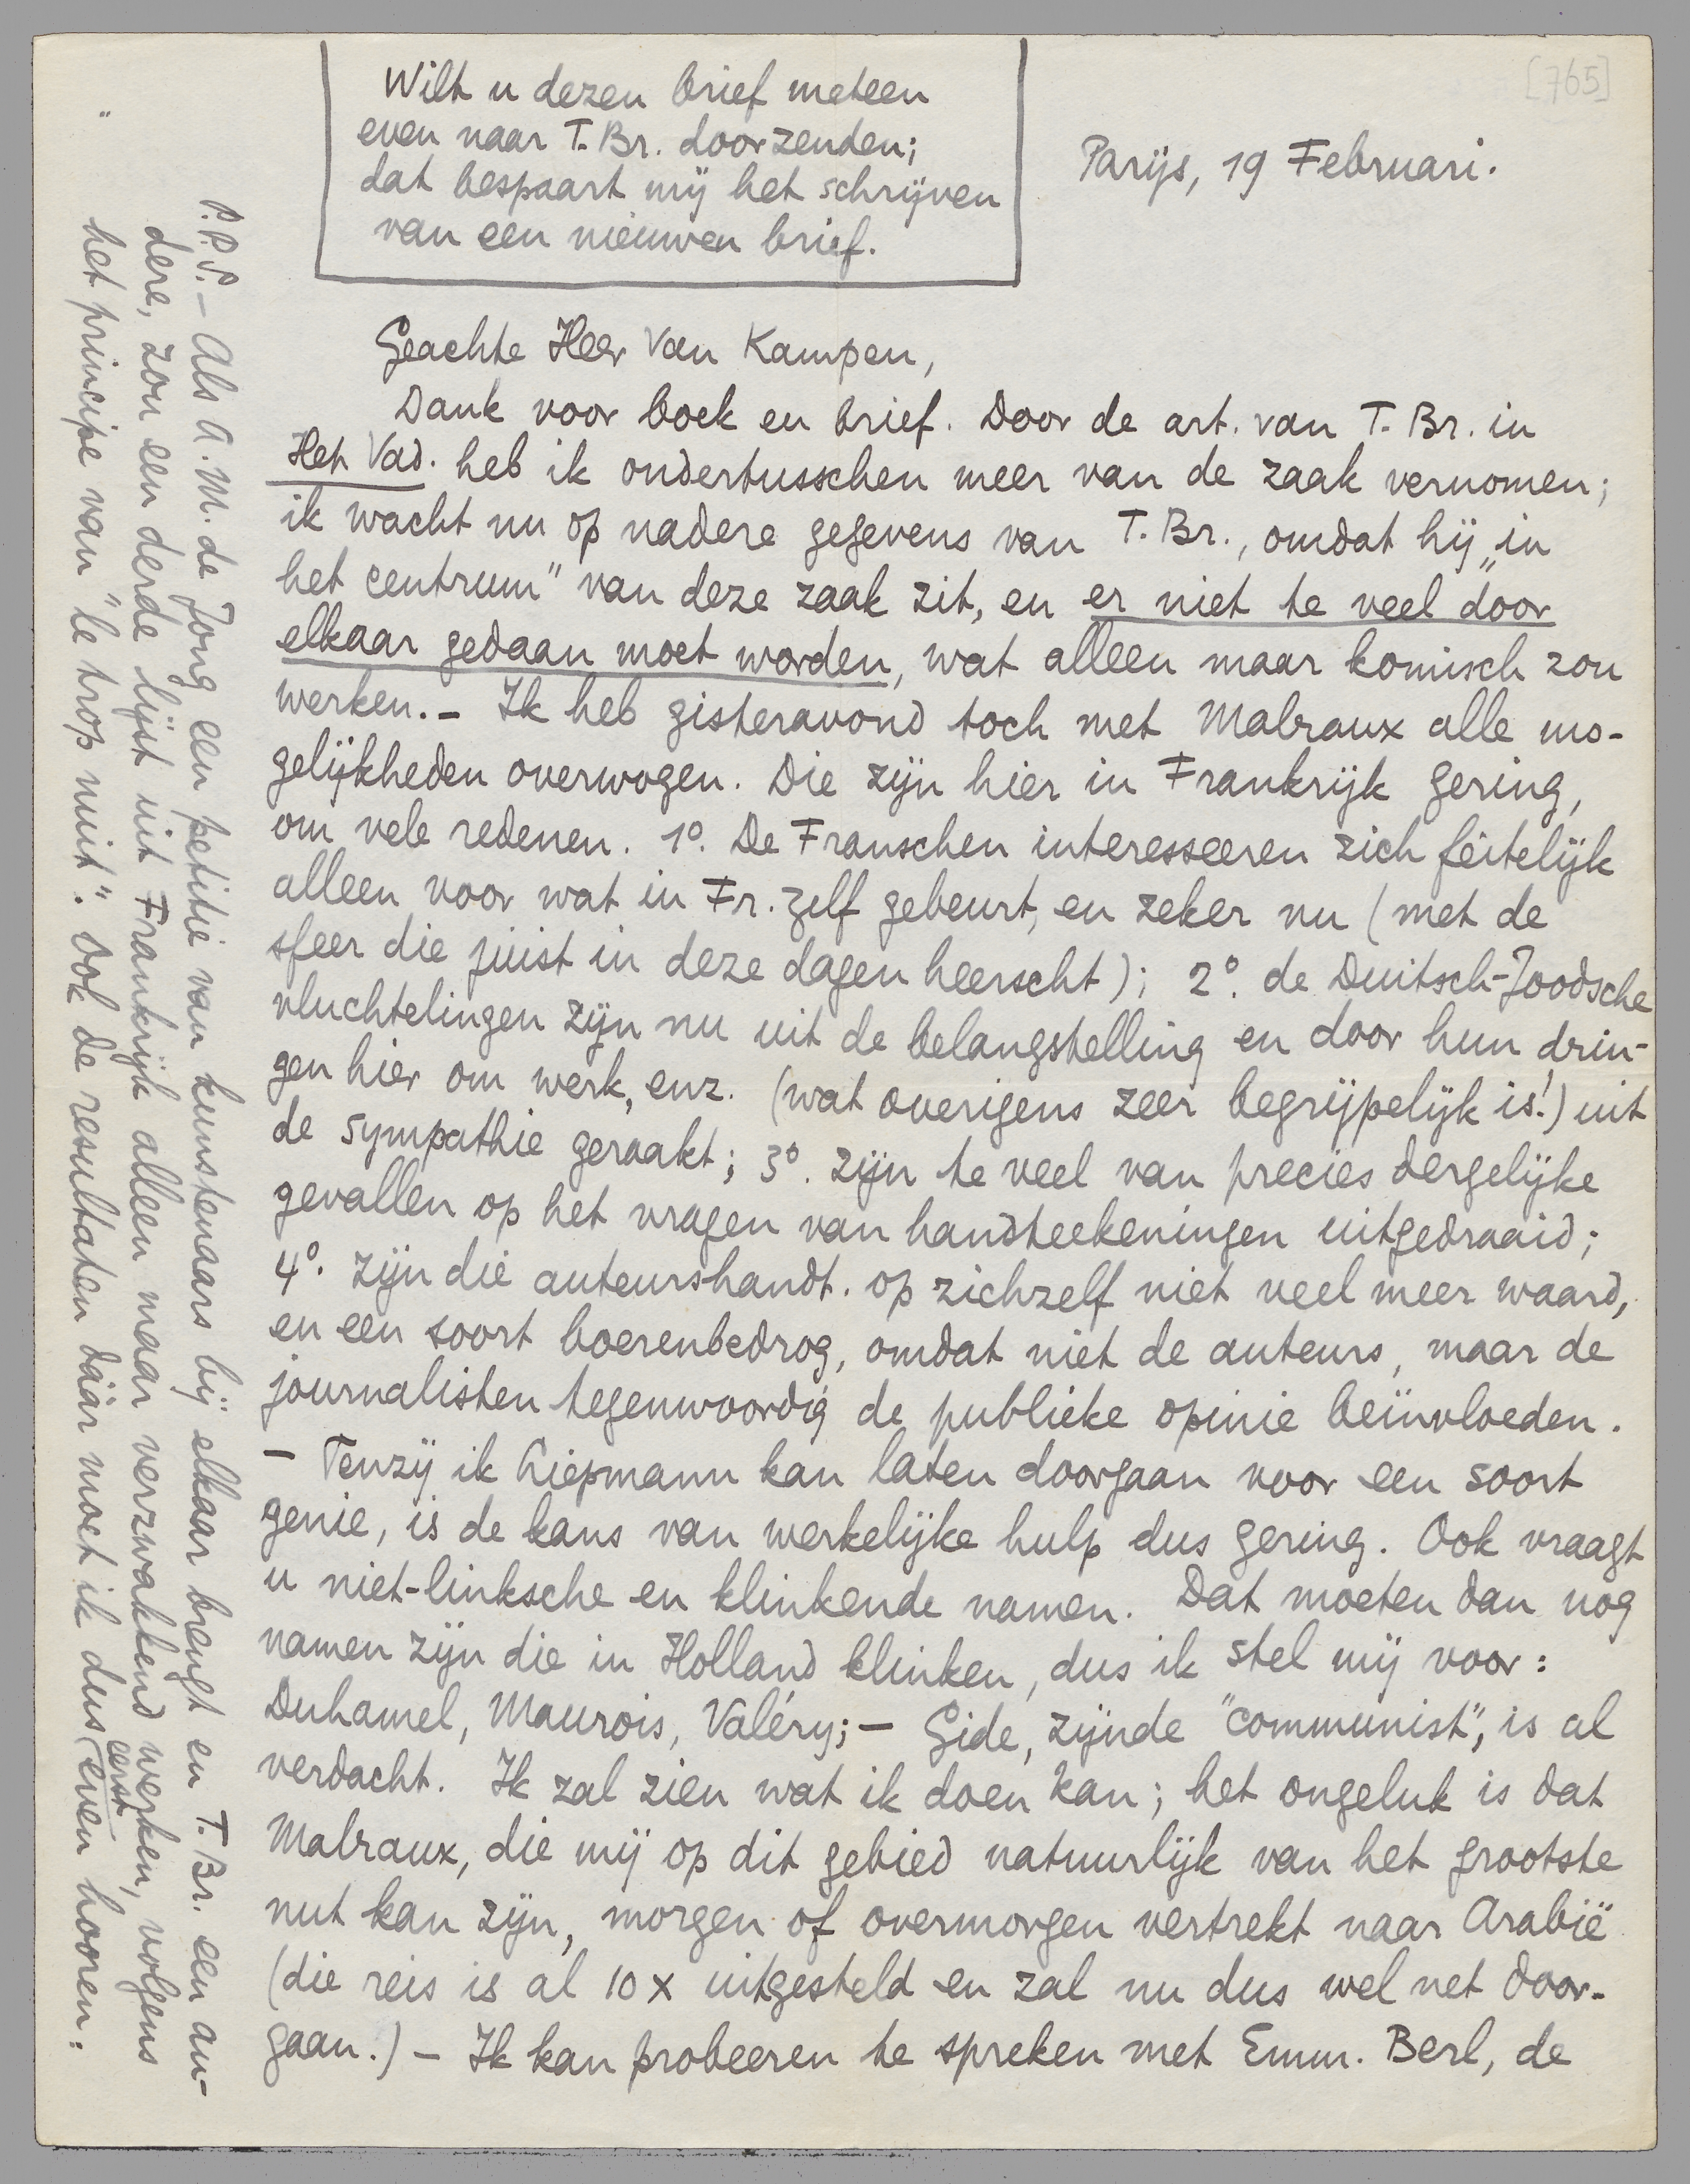 [765]
Wilt u dezen brief meteen
even naar T. Br. doorzenden;
dat bespaart mij het schrijven
van een nieuwen brief.
Parijs, 19 Februari.
Geachte Heer Van Kampen,
Dank voor boek en brief. Door de art. van T. Br. in
Het Vad. heb ik ondertusschen meer van de zaak vernomen;
ik wacht nu op nadere gegevens van T. Br., omdat hij „in
het centrum" van deze zaak zit, en er niet te veel door
elkaar gedaan moet worden, wat alleen maar komisch zou
werken. – Ik heb gisteravond toch met Malraux alle mo-
gelijkheden overwogen. Die zijn hier in Frankrijk gering,
om vele redenen. 1º. De Franschen interesseeren zich feitelijk
alleen voor wat in Fr. zelf gebeurt, en zeker nu (met de
sfeer die juist in deze dagen heerscht); 2º. de Duitsch-Joodsche
vluchtelingen zijn nu uit de belangstelling en door hun drin-
gen hier om werk, enz. (wat overigens zeer begrijpelijk is!) uit
de sympathie geraakt; 3º. zijn te veel van precies dergelijke
gevallen op het vragen van handteekeningen uitgedraaid;
4º. zijn die auteurshandt. op zichzelf niet veel meer waard,
en een soort boerenbedrog, omdat niet de auteurs, maar de
journalisten tegenwoordig de publieke opinie beïnvloeden.
– Tenzij ik Liepmann kan laten doorgaan voor een soort
genie, is de kans van werkelijke hulp dus gering. Ook vraagt
u niet-linksche en klinkende namen. Dat moeten dan nog
namen zijn die in Holland klinken, dus ik stel mij voor:
Duhamel, Maurois, Valéry; – Gide, zijnde "communist", is al
verdacht. Ik zal zien wat ik doen kan; het ongeluk is dat
Malraux, die mij op dit gebied natuurlijk van het grootste
nut kan zijn, morgen of overmorgen vertrekt naar Arabië
(die reis is al 10 x uitgesteld en zal nu dus wel net door-
gaan.) – Ik kan probeeren te spreken met Emm. Berl, de
P.P.S. – Als A.M. de Jong een petitie van kunstenaars bij elkaar brengt en T. Br. een an-
dere, zou een derde lijst uit Frankrijk alleen maar verzwakkend werken, volgens
het principe van "le trop nuit". Ook de resultaten dáár moet ik dus eerst even hooren.